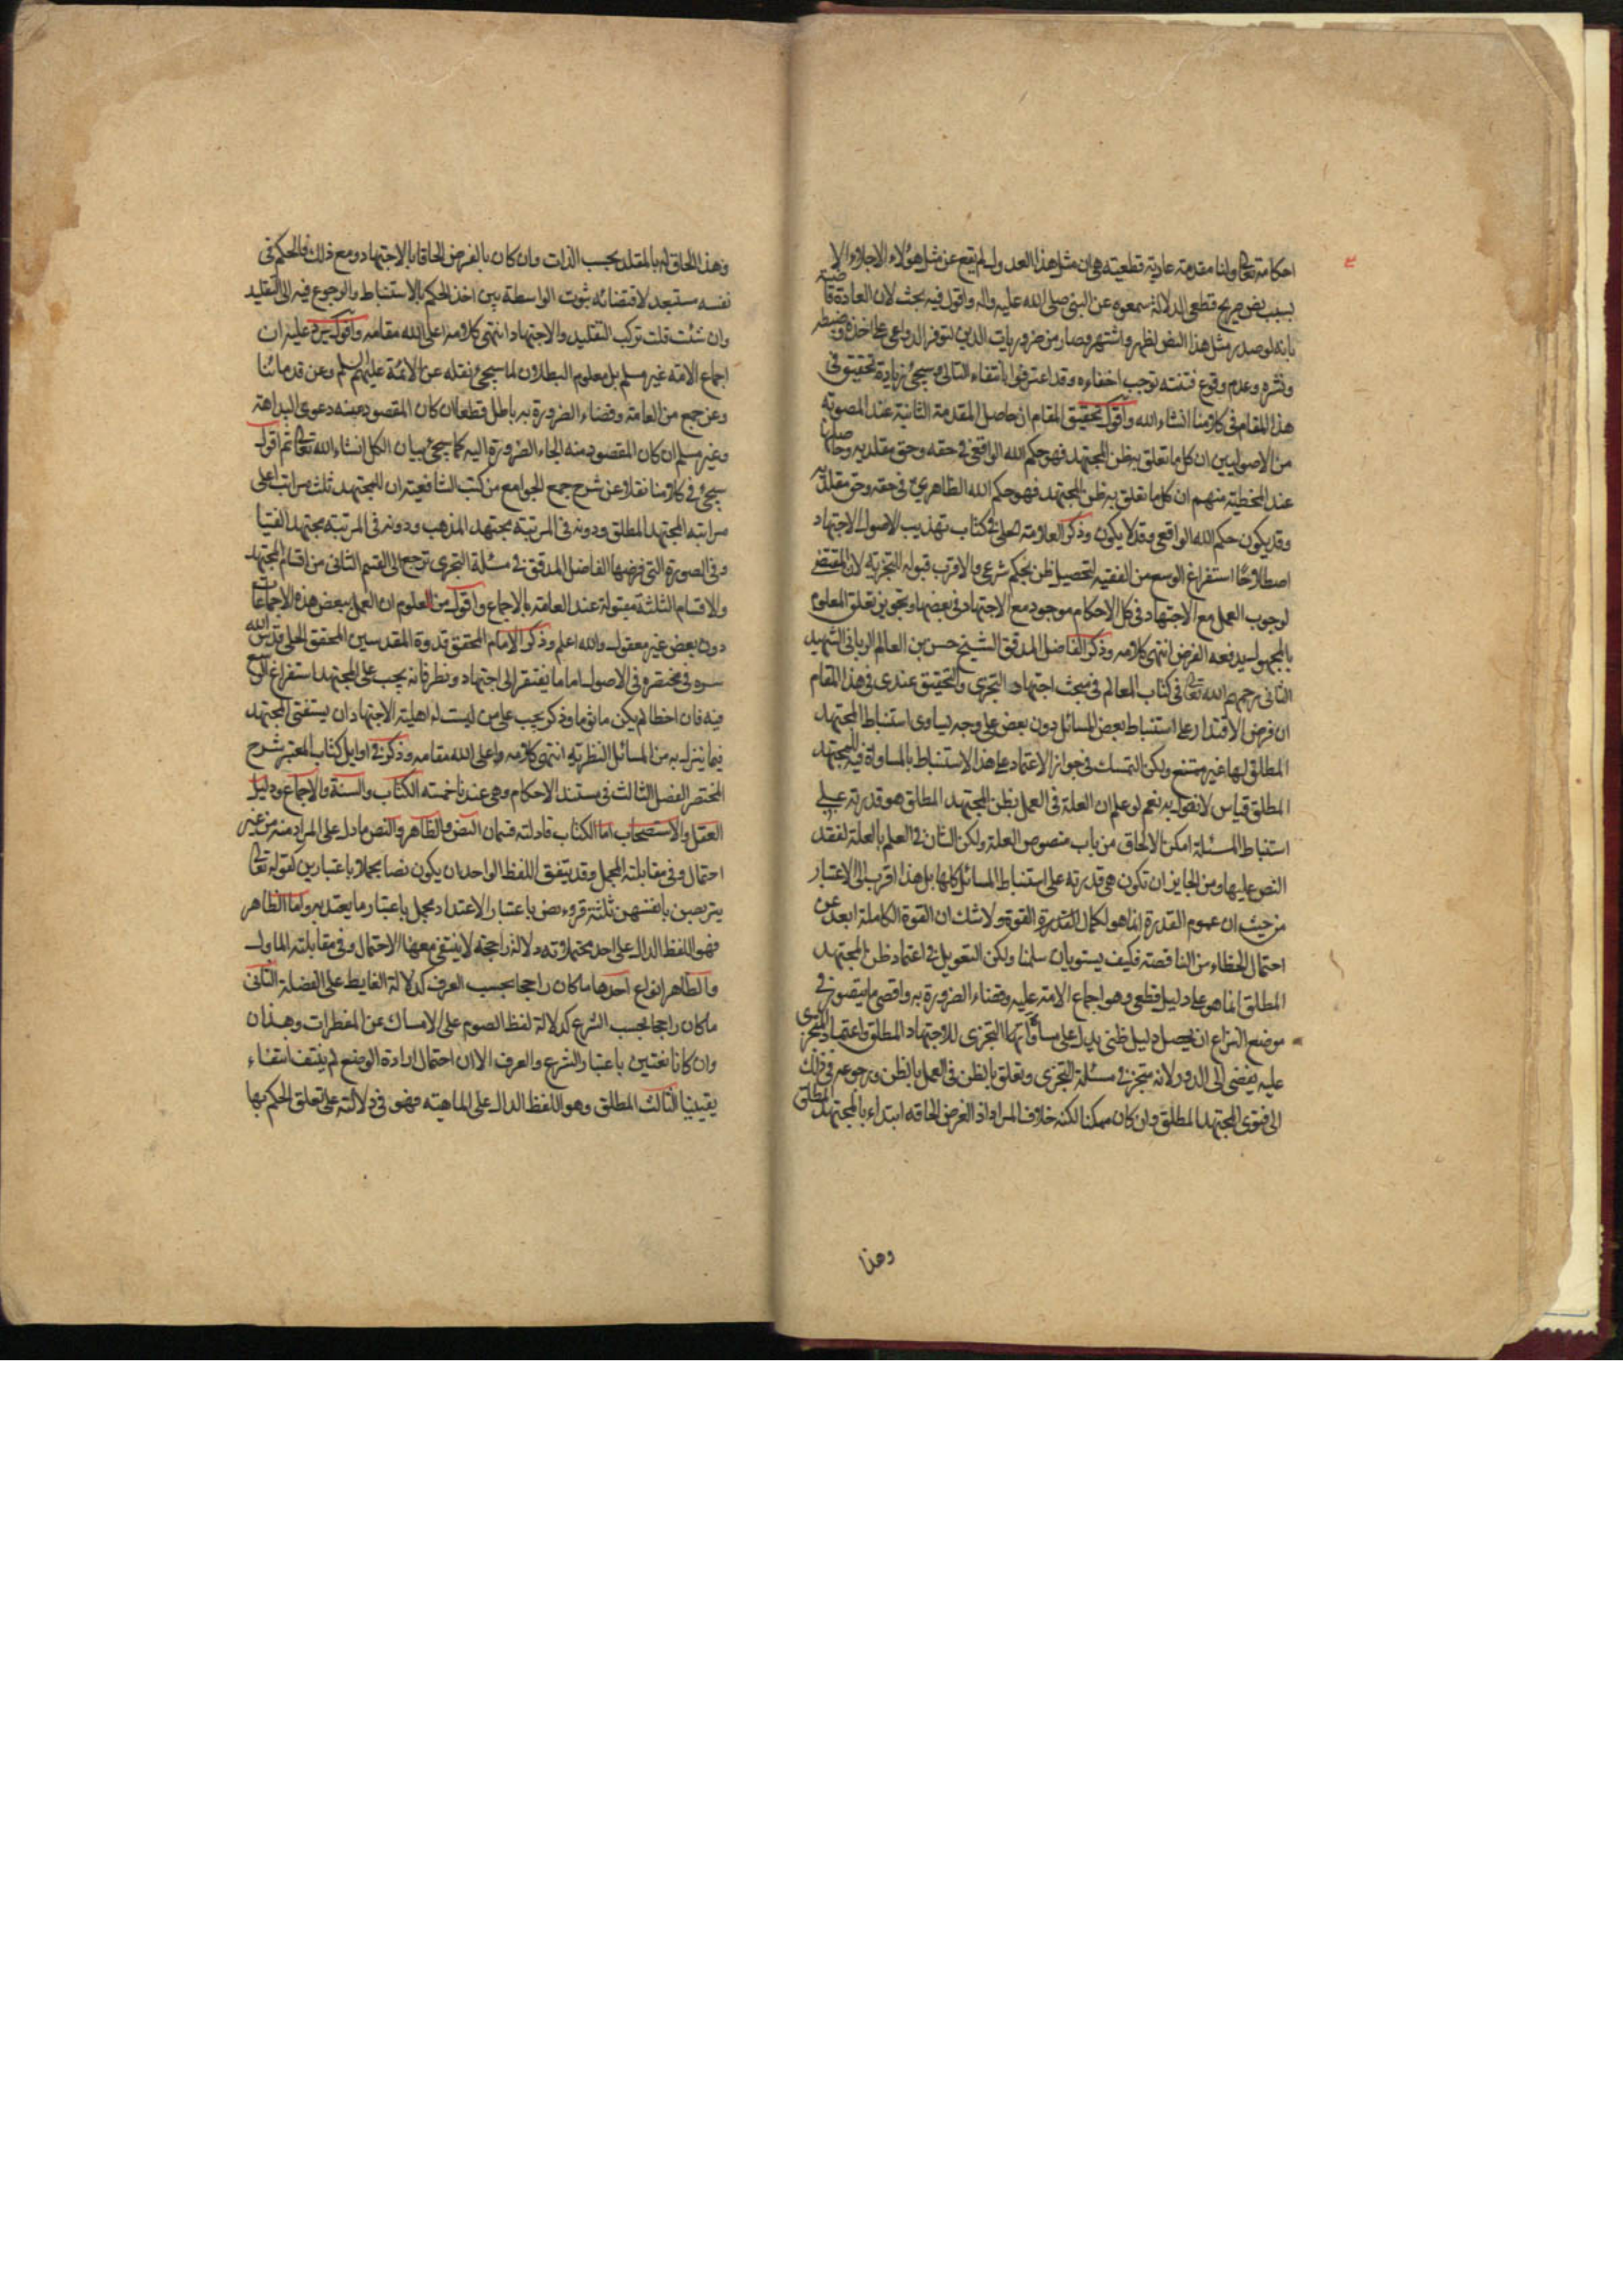 احكامه تعالى ولنا مقدمة عادية قطعية هي ان مثل هذا العدول لم يقع عن مثل هؤلاء الاجلاء الا
بسبب نص صريح قطعي الدلالة سمعوه عن النبي صلى الله عليه واله واقول فيه بحث لان العادة قاضية
بانه لو صدر مثل هذا النص لظهر واشتهر وصار من ضروريات الدين لتوفر الدواعي على اخذه وضبطه
ونشره وعدم وقوع فتنة توجب اخفاءه وقد اعترفوا بانتفاء التالي وسيجئ زيادة تحقيق في
هذا المقام في كلامنا انشاء الله واقول تحقيق المقام ان حاصل المقدمة الثانية عند المصوبة
من الاصوليين ان كل ما تعلق به ظن المجتهد فهو حكم الله الواقعي في حقه وحق مقلديه وحاصلها
عند المخطية منهم ان كل ما تعلق به ظن المجتهد فهو حكم الله الظاهري في حقه وحق مقلديه
وقد يكون حكم الله الواقعي وقد لا يكون وذكر العلامة الحلي في كتاب تهذيب الاصول الاجتهاد
اصطلاحا استفراغ الوسع من الفقيه لتحصيل ظن بحكم شرعي والاقرب قبوله للتجزية لان المقتضي
لوجوب العمل مع الاجتهاد في كل الاحكام موجود مع الاجتهاد في بعضها وتجويز تعلق المعلوم
بالمجهول يدفعه الفرض انتهى كلامه وذكر الفاضل المدقق الشيخ حسن بن العالم الرباني الشهيد
الثاني رحمهم الله تعالى في كتاب المعالم في مبحث اجتهاد التجزي والتحقيق عندي في هذا المقام
ان فرض الاقتدار على استنباط بعض المسائل دون بعض على وجه يساوي استنباط المجتهد
المطلق لها غير ممتنع ولكن التمسك في جواز الاعتماد على هذا الاستنباط بالمساواة فيه للمجتهد
المطلق قياس لا نقول به نعم لو علم ان العلة في العمل بظن المجتهد المطلق هو قدرته على
استنباط المسئلة امكن الالحاق من باب منصوص العلة ولكن الشان في العلم بالعلة لفقد
النص عليها ومن الجايز ان تكون هي قدرته على استنباط المسائل كلها بل هذا اقرب الى الاعتبار
من حيث ان عموم القدرة انما هو لكمال القوة ولا شك ان القوة الكاملة ابعد عن
احتمال الخطاء من الناقصة فكيف يستويان سلمنا ولكن التعويل في اعتماد ظن المجتهد
المطلق انما هو على دليل قطعي وهو اجماع الامة عليه وقضاء الضرورة به واقصى ما يتصور في
موضع النزاع ان يحصل دليل ظني يدل على مساواة التجزي للاجتهاد المطلق واعتماد المتجزي
عليه يفضي الى الدور لانه متجز في مسئلة التجزي وتعلق بالظن في العمل بالظن ورجوعه في ذلك
الى فتوى المجتهد المطلق وان كان ممكنا لكنه خلاف المراد اذ الفرض الحاقه ابتداء بالمجتهد المطلق
وهذا
وهذا الحاق له بالمقلد بحسب الذات وان كان بالفرض الحاقا بالاجتهاد ومع ذلك فالحكم في
نفسه مستبعد لاقتضائه ثبوت الواسطة بين اخذ الحكم بالاستنباط والرجوع فيه الى التقليد
وان شئت قلت تركب التقليد والاجتهاد انتهى كلامه اعلى الله مقامه واقول يرد عليه ان
اجماع الامة غير مسلم بل معلوم البطلان لما سيجئ نقله عن الائمة عليهم السلم وعن قدمائنا
وعن جمع من العامة وقضاء الضرورة به باطل قطعا ان كان المقصود منه دعوى البداهة
وغير مسلم ان كان المقصود منه الجاء الضرورة اليه كما سيجئ بيان الكل انشاء الله تعالى ثم اقول
سيجئ في كلامنا نقلا عن شرح جمع الجوامع من كتب الشافعية ان للمجتهد ثلث مراتب اعلى
مراتبه المجتهد المطلق ودونه في المرتبة مجتهد المذهب ودونه في المرتبة مجتهد الفتيا
وفي الصورة التي فرضها الفاضل المدقق في مسئلة التجزي ترجع الى القسم الثاني من اقسام المجتهد
والاقسام الثلثة مقبولة عند العامة بالاجماع واقول من المعلوم ان العمل ببعض هذه الاجماعات
دون بعض غير معقول والله اعلم وذكر الامام المحقق قدوة المقدسين المحقق الحلي قدس الله
سره في مختصره في الاصول اما ما يفتقر الى اجتهاد ونظر فانه يجب على المجتهد استفراغ الوسع
فيه فان اخطا لم يكن ماثوما وذكر يجب على من ليست له اهلية الاجتهاد ان يستفتي المجتهد
فيما ينزل به من المسائل النظرية انتهى كلامه واعلى الله مقامه وذكر في اوايل كتاب المعتبر شرح
المختصر الفصل الثالث في مستند الاحكام وهي عندنا خمسة الكتاب والسنة والاجماع ودليل
العقل والاستصحاب اما الكتاب فادلته قسمان النص والظاهر والنص ما دل على المراد منه من غير
احتمال وفي مقابلته المجمل وقد يتفق اللفظ الواحد ان يكون نصا مجملا باعتبارين كقوله تعالى
يتربصن بانفسهن ثلثة قروء نص باعتبار الاعتداد مجمل باعتبار ما يعتد به واما الظاهر
فهو اللفظ الدال على احد محتملاته دلالة راجحة لا ينتفي معها الاحتمال وفي مقابلته الماول
والظاهر انواع احدها ما كان راجحا بحسب العرف كدلالة الغايط على الفضلة الثاني
ما كان راجحا بحسب الشرع كدلالة لفظ الصوم على الامساك عن المفطرات وهذان
وان كانا نصين باعتبار الشرع والعرف الا ان احتمال ارادة الوضع لم ينتف انتفاء
يقينيا الثالث المطلق وهو اللفظ الدال على الماهية فهو في دلالته على تعلق الحكم بها